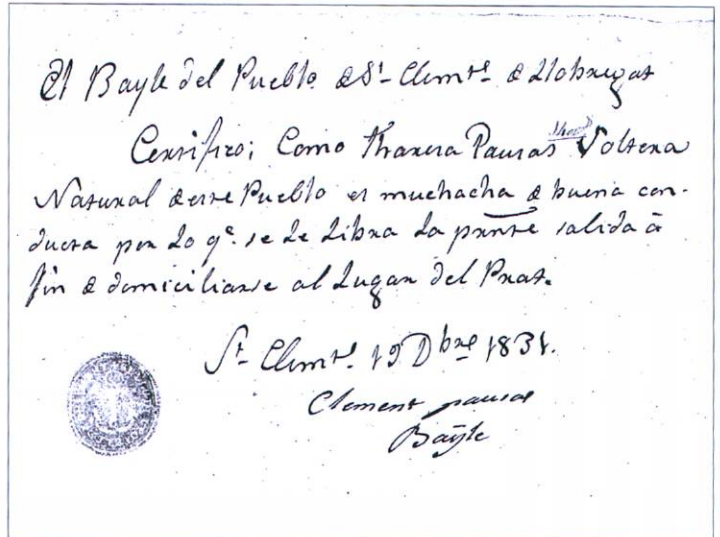 El Bayle del Pueblo de Sn. Clemte. de Llobregat
Certifico; Como Tharesa Pausas Soltera
Natural de este Pueblo es muchacha de buena con-
ducta por Lo qe. se Le Libra La prnte salida â
fin de domiciliarse al Lugar del Prat.
St. Clemte. 19 Dbre 1831.
Clement pausas
Bayle